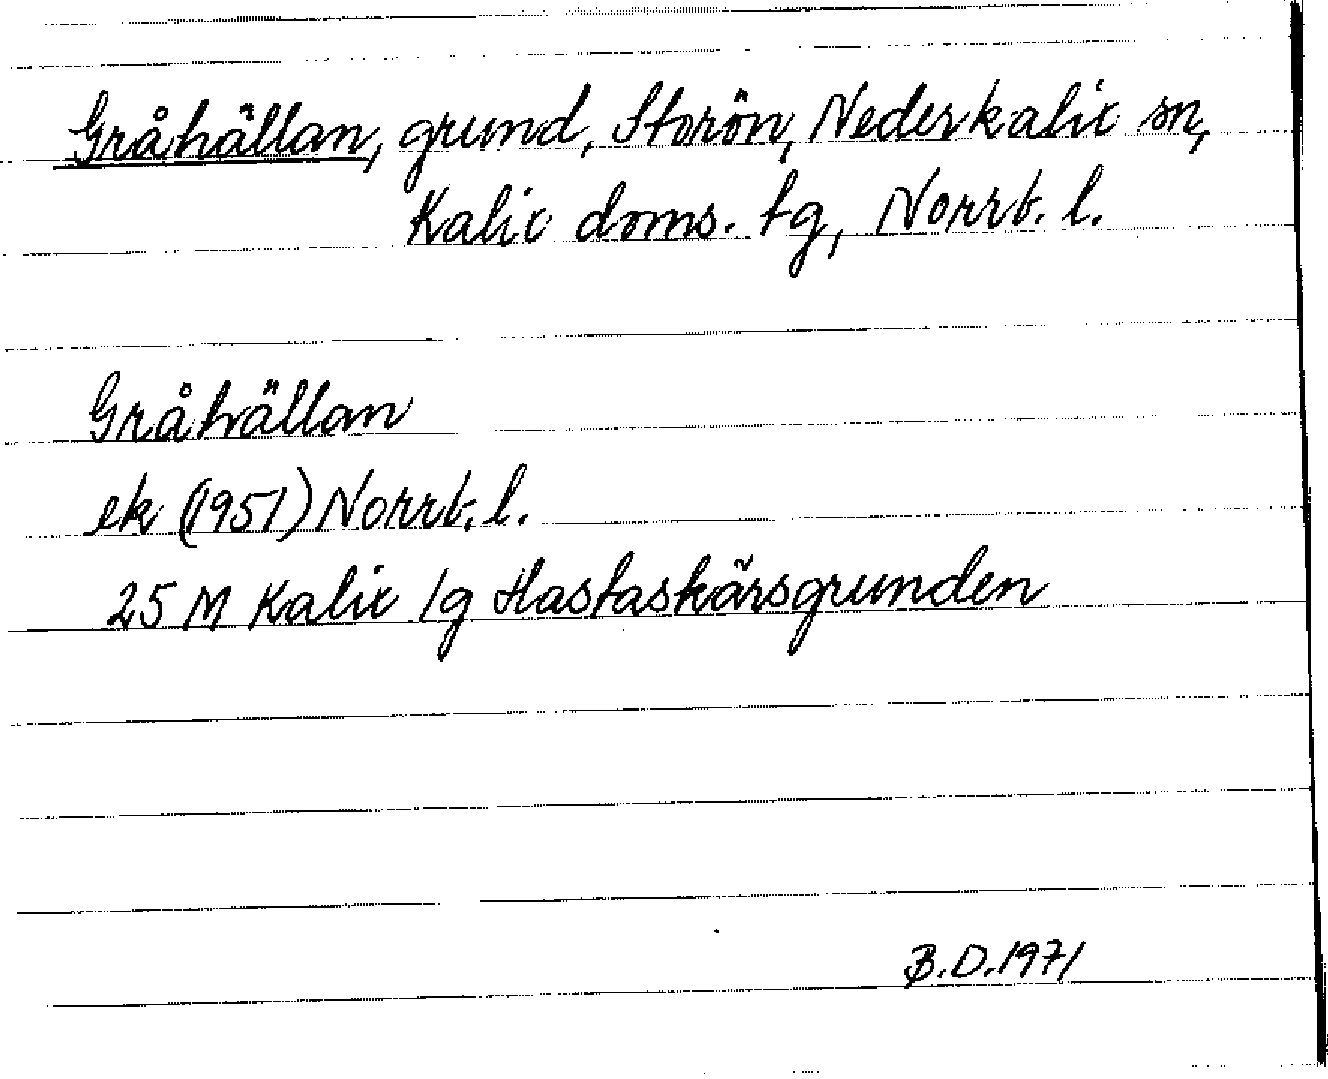 Gråhällan, grund, Storön, Nederkalix sn,
Kalix doms. tg, Norrb. l.
Gråhällan
ek (1951) Norrb. l.
25 M Kalix 1g Hastaskärsgrunden
B.D.1971